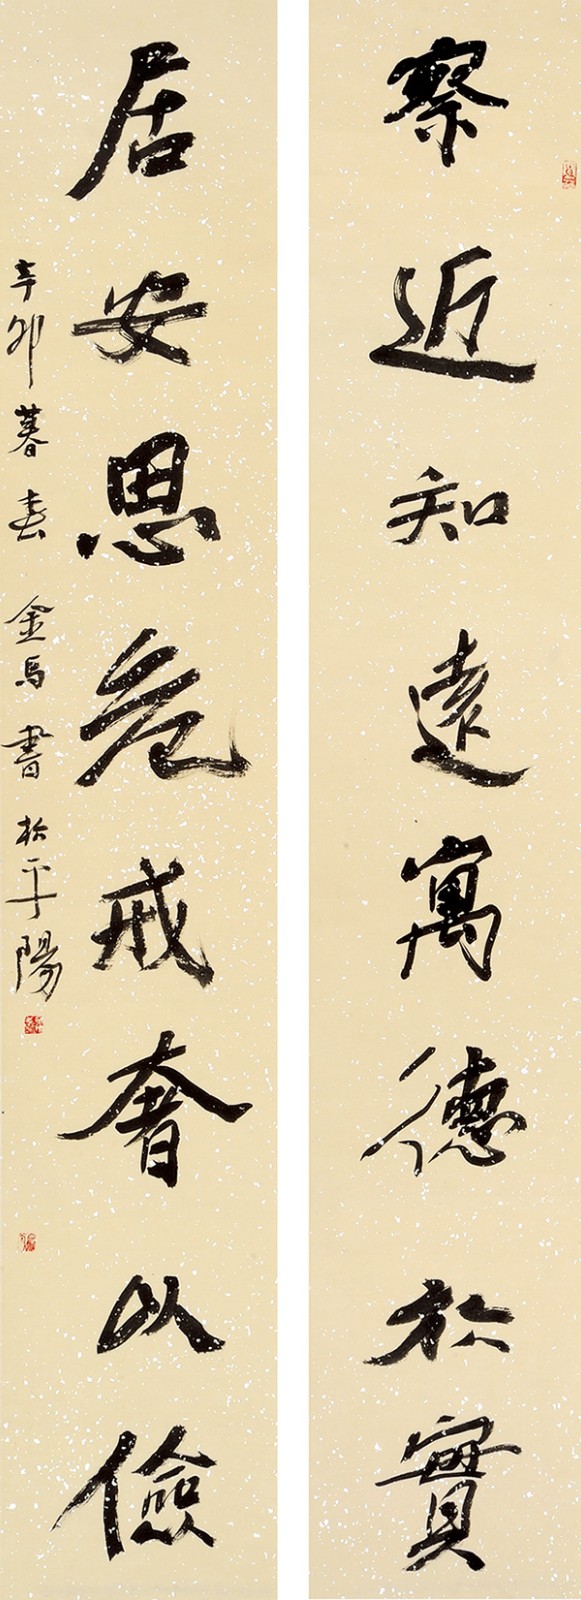 察近知遠寓德於實
居安思危戒奢以儉
辛卯暮春金馬書於平陽